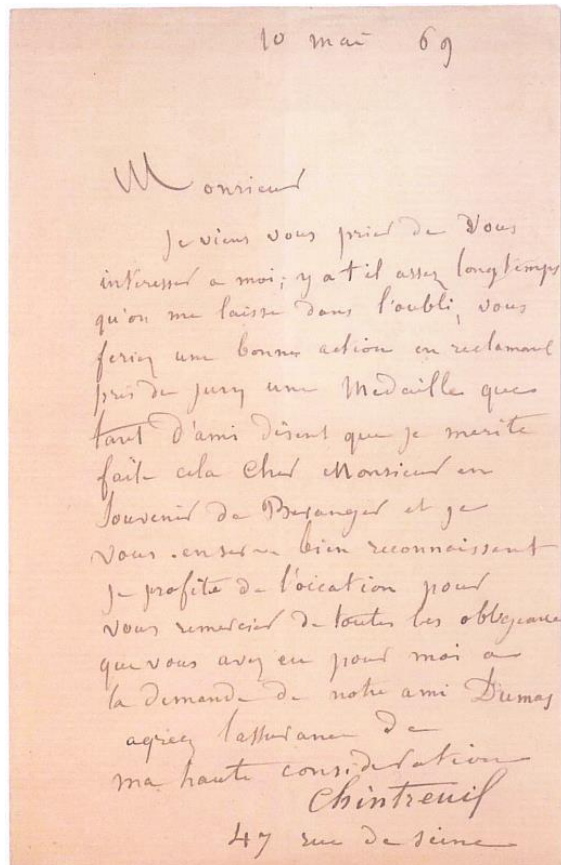 10 mai 69
Monsieur
Je viens vous prier de Vous
intéresser a moi; y a t il assez longtemps
qu'on me laisse dans l'oubli, vous
feriez une bonne action en reclamant
près du jury une Medaille que
tant d'ami disent que je merite
faite cela Cher Monsieur en
souvenir de Beranger et je
vous en serai bien reconnaissant
je profite de l'occation pour
vous remercier de toutes les obligeance
que vous avez eu pour moi a
la demande de notre ami Dumas
agréez l'assurance de
ma haute consideration
Chintreuil
47 rue de seine